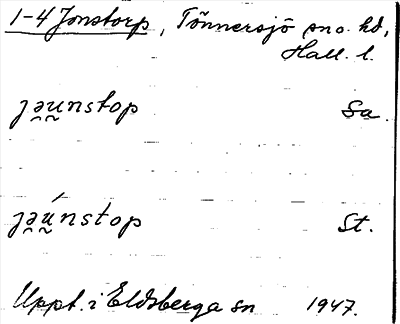 1-4 Jonstorp, Tönnersjö sn o. hd,
Hall. l.
ȷə̯ṷnstop Sa.
ȷə̯ṷ́nstop St.
Uppt. i Eldsberga sn 1947.